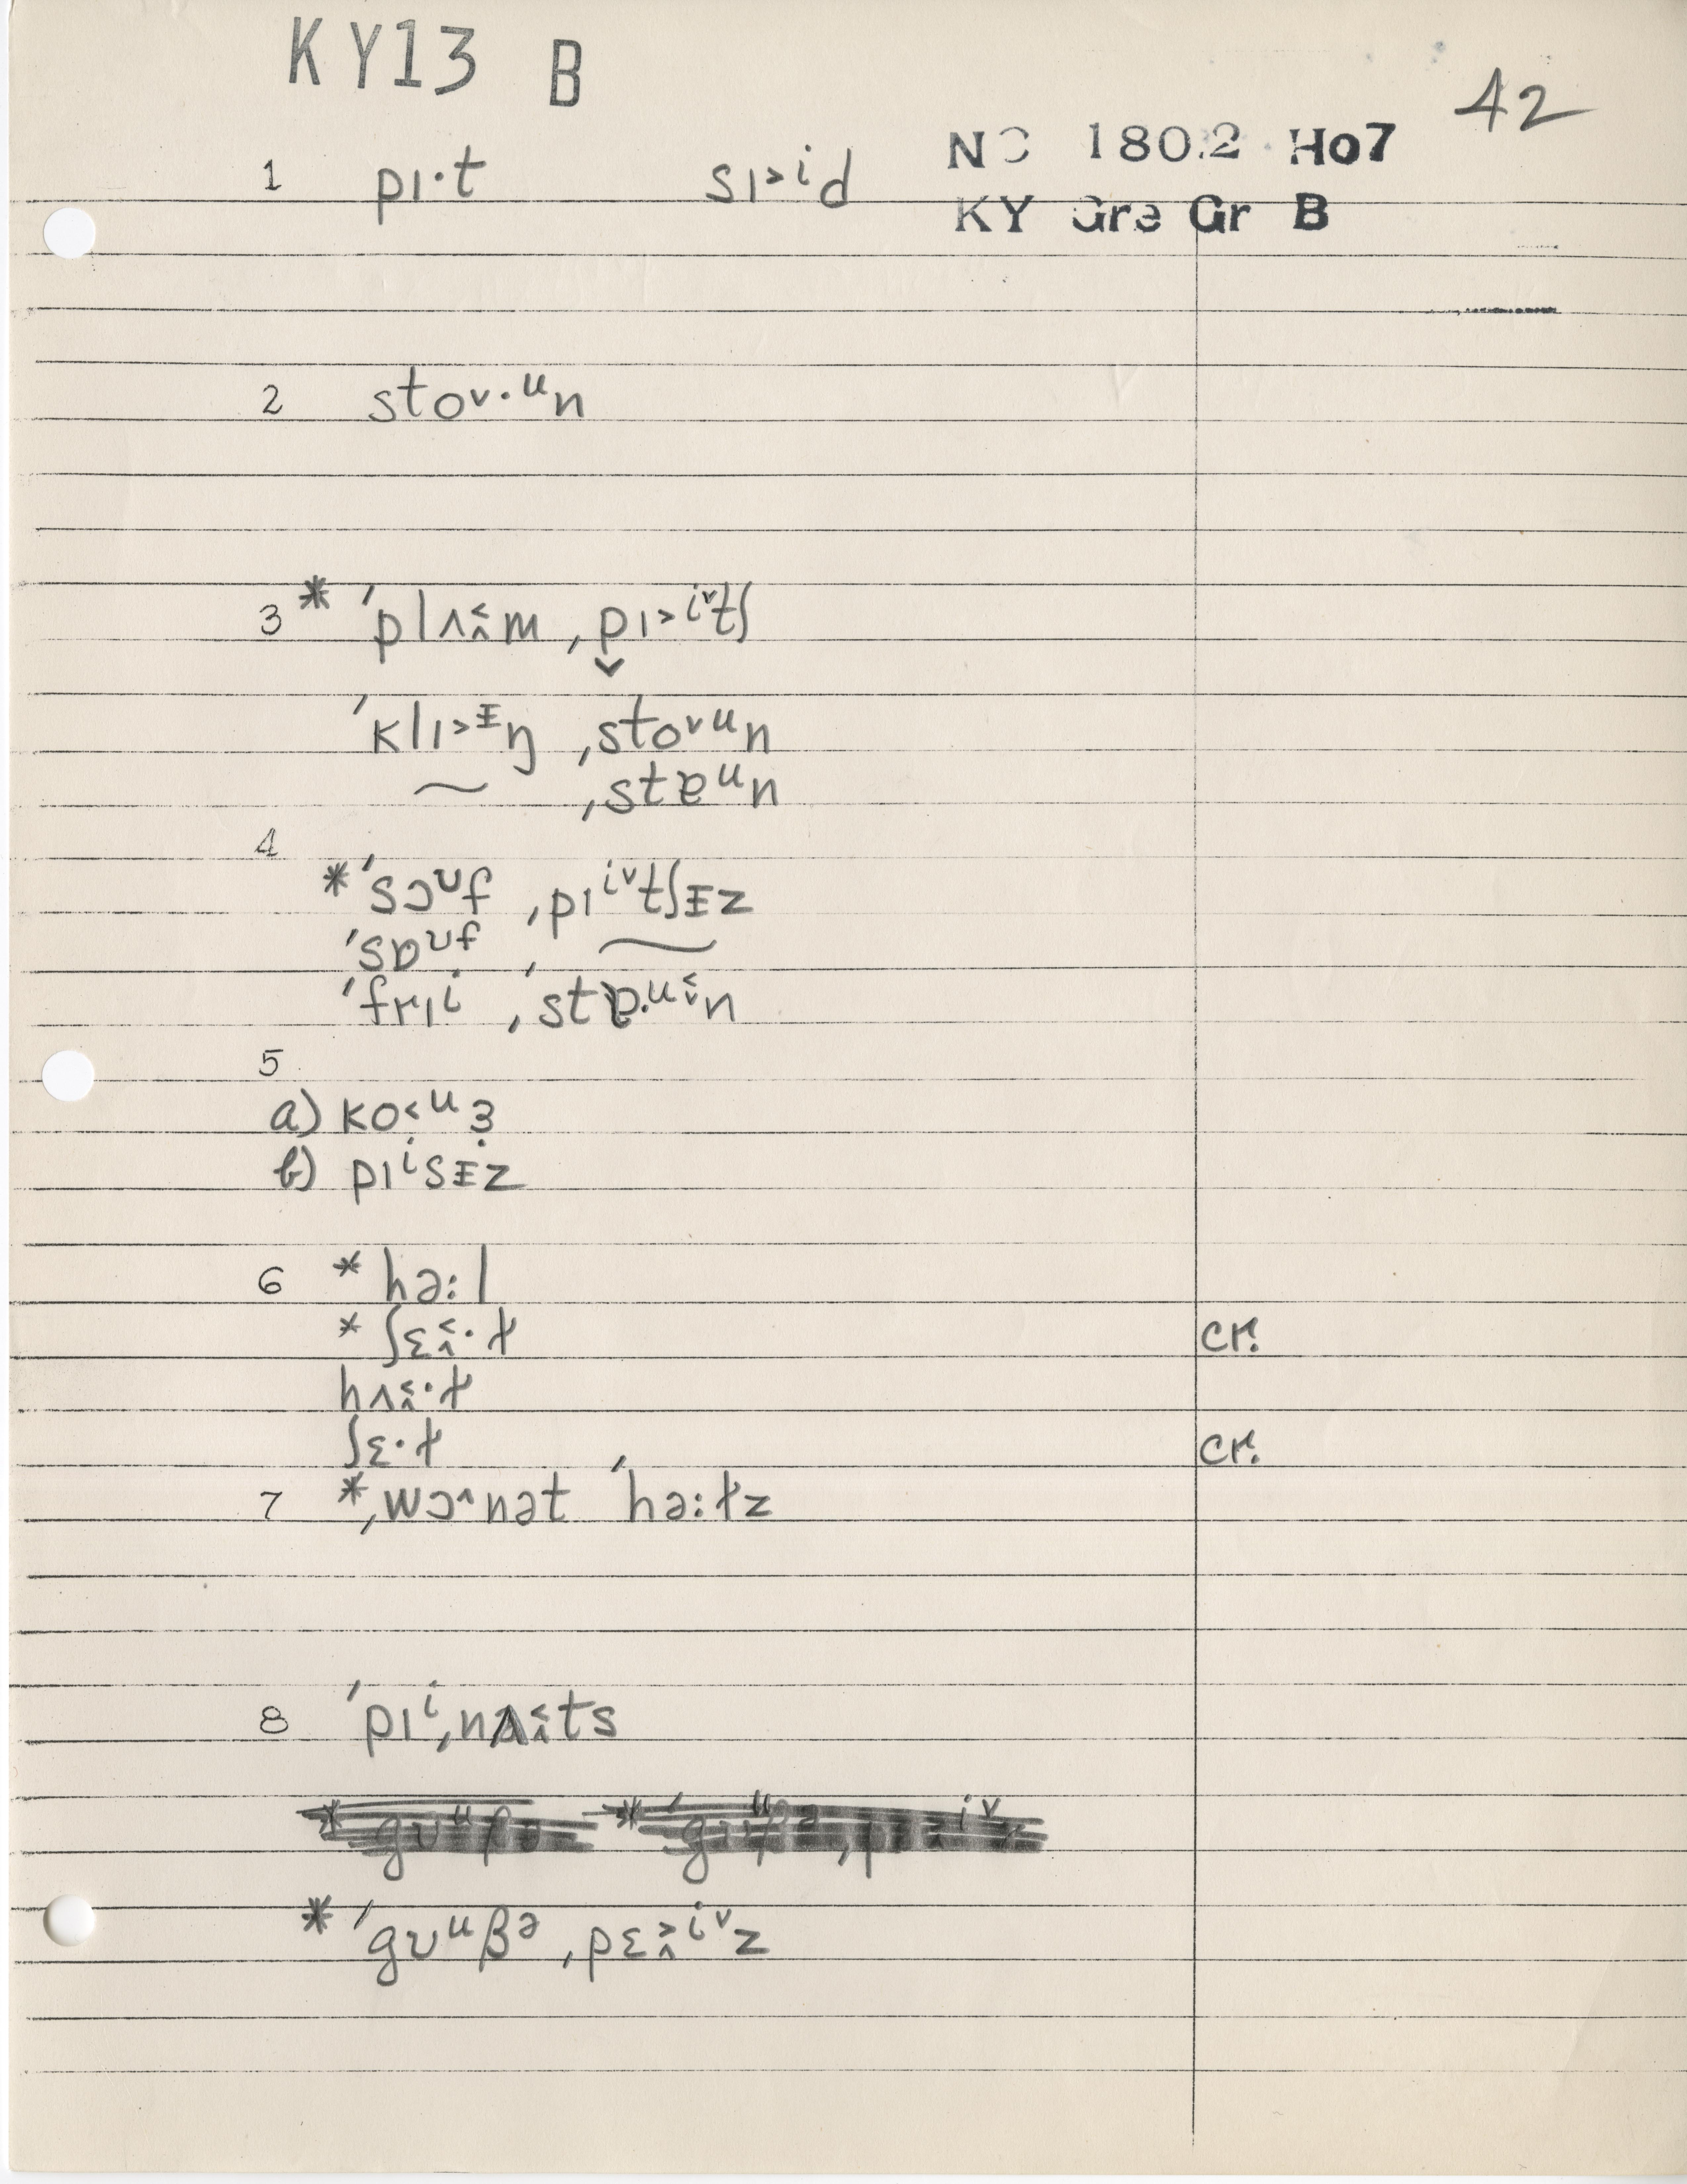 KY13 B
42
NC 180.2 Ho7
1 pɪ·t sɪ˃ⁱd
KY Gre Gr B
2 stoᵛ·ᵘn
3 * ˈplʌi̭˂m ˌpɪ˃ⁱᵛtʃ
ˈklɪ˃ᵻŋ ˌstoᵛᵘn
ˌstɐᵘn
4
* ˈsɔᵘf ˌpɪⁱᵛtʃᵻz
ˈsɒᵘf ˌ
ˈfrɪⁱ ˌstɒ·ᵘ˂ᵛn
5
a) ko˂ᵘɜ
b) pɪⁱsᵻz
6 * hə:l
* ʃɛ˂^·ɫ cr.
hʌ˂^·ɫ
ʃɛ·ɫ cr.
7 * ˌwɔ^nət ˈhə:ɫz
8 ˈpɪⁱˌnʌ˂^ts
* ˈgʊᵘβᵊ ˌpɛ˃^ⁱᵛz